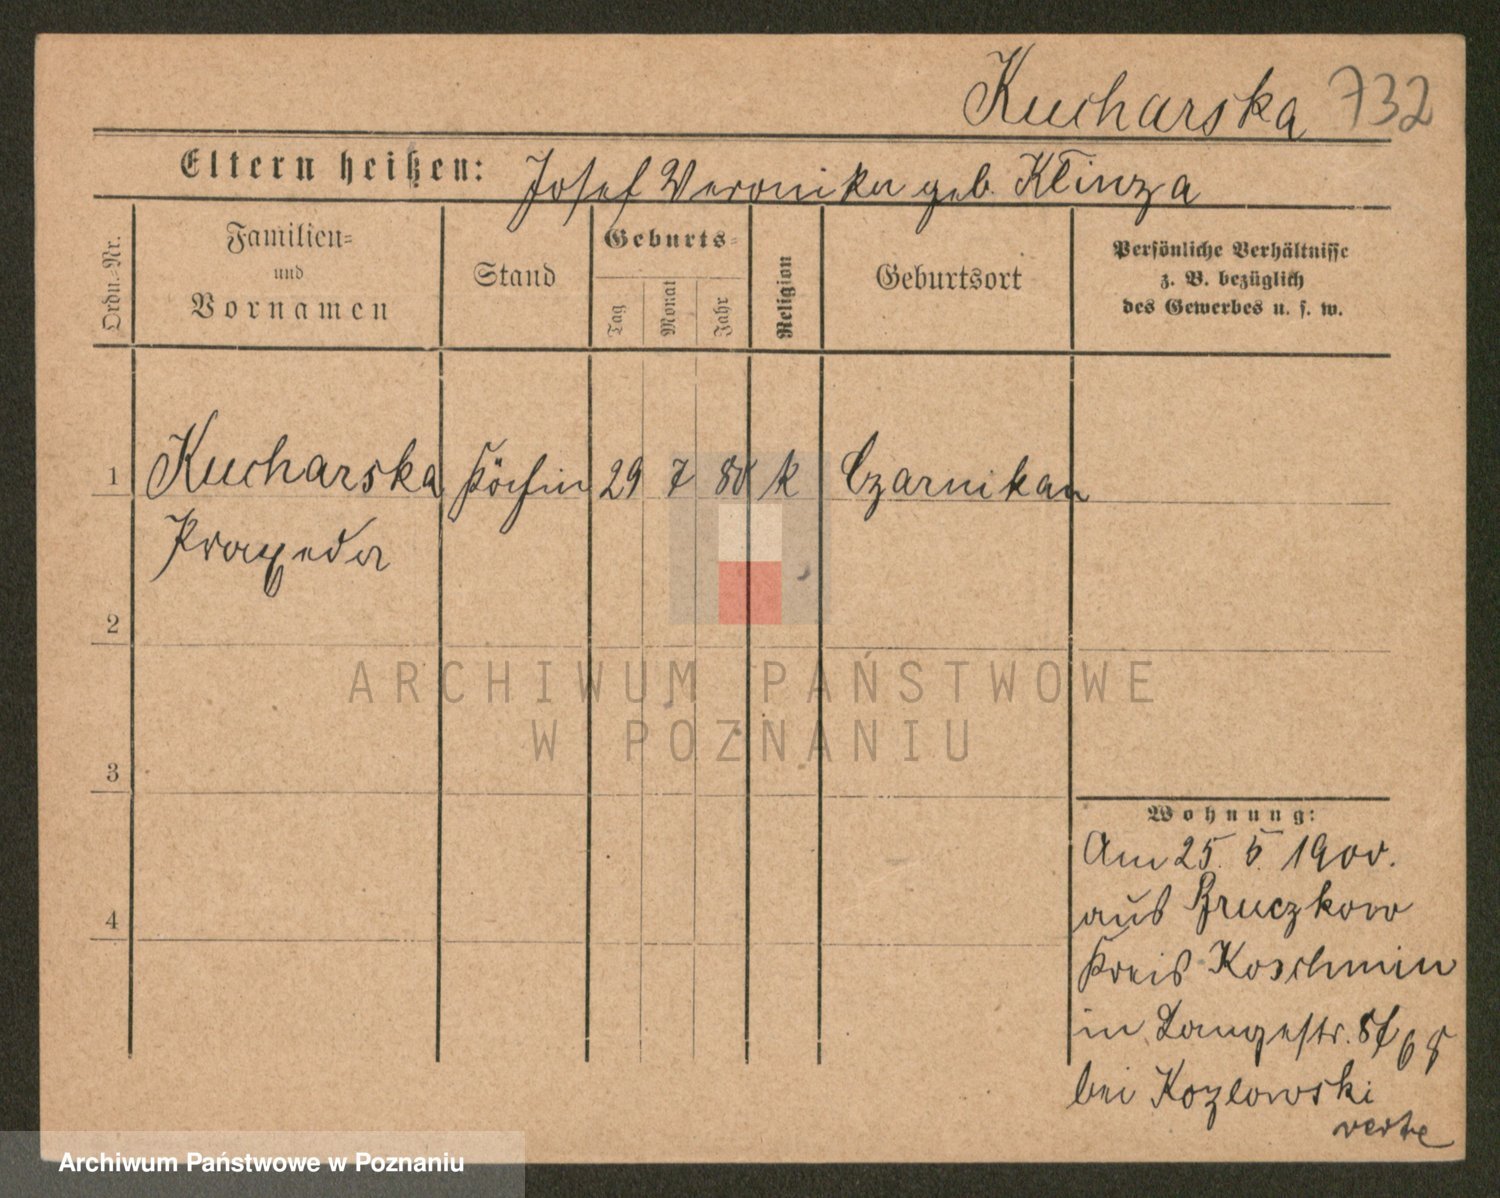 Kucharska 732
Eltern heißen: Josef Veronika geb. Klinza
Ordn.-Nr.
Familien-
und
Vornamen
Stand
Geburts-
Tag
Monat
Jahr
Religion
Geburtsort
Persönliche Verhältnisse
z. B. bezüglich
des Gewerbes u. s. w.
1 Kucharska Köchin 29 7 80 k Czarnikau
Praxeda
2
3
4
Wohnung:
Am 25. 5. 1900.
aus Bruczkow
Kreis Koschmin
in Langestr.
bei Kozlowski
verte
ARCHIWUM PAŃSTWOWE
W POZNANIU
Archiwum Państwowe w Poznaniu